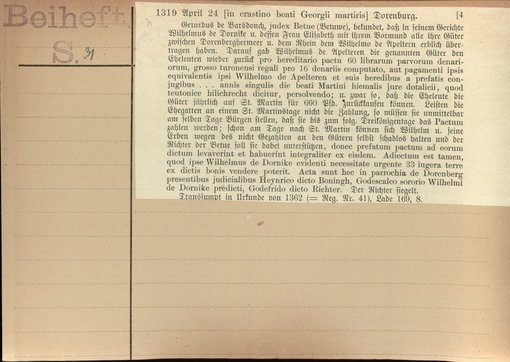 Beiheft
S. 31
1319 April 24 [in crastino beati Georgii martiris] Dorenburg. [4
Gerardus de Varsdonch, judex Betue (Betuwe), bekundet, daß in seinem Gerichte
Wilhelmus de Dornike u. dessen Frau Elisabeth mit ihrem Vormund alle ihre Güter
zwischen Dorenberghermeer u. dem Rhein dem Wilhelmo de Apeltern erblich über-
tragen haben. Darauf gab Wilhelmus de Apelteren die genannten Güter den
Eheleuten wieder zurück pro hereditario pactu 60 librarum parvorum denari-
orum, grosso turonensi regali pro 16 denariis computato, aut pagamenti ipsis
equivalentis ipsi Wilhelmo de Apelteren et suis heredibus a prefatis con-
jugibus . . . annis singulis die beati Martini hiemalis jure dotalicii, quod
teutonice hilichrecht dicitur, persolvendo; u. zwar so, daß die Eheleute die
Güter jährlich auf St. Martin für 660 Pfd. zurückkaufen können. Leisten die
Ehegatten an einem St. Martinstage nicht die Zahlung, so müssen sie unmittelbar
am selben Tage Bürgen stellen, daß sie bis zum folg. Dreikönigentage das Pactum
zahlen werden; schon am Tage nach St. Martin können sich Wilhelm u. seine
Erben wegen des nicht Gezahlten an den Gütern selbst schadlos halten und der
Richter der Betue soll sie dabei unterstützen, donec prefatum pactum ad eorum
dictum levaverint et habuerint integraliter ex eisdem. Adiectum est tamen,
quod ipse Wilhelmus de Dornike evidenti necessitate urgente 33 iugera terre
ex dictis bonis vendere poterit. Acta sunt hec in parrochia de Dorenberg
presentibus judicialibus Heynrico dicto Boningh, Godescalco sororio Wilhelmi
de Dornike predicti, Godefrido dicto Richter. Der Richter siegelt.
Transsumpt in Urkunde von 1362 (= Reg. Nr. 41), Lade 169, 8.